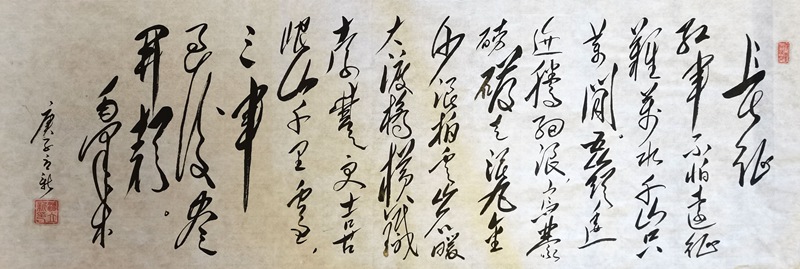 長征
紅軍不怕遠征
難萬水千山只
等閒五嶺逶
迤騰細浪烏蒙
磅礴走泥丸金
沙浪拍雲崖暖
大渡橋橫鐵
索寒更喜
岷山千里雪
三軍
過後盡
開顏
毛澤東
庚子